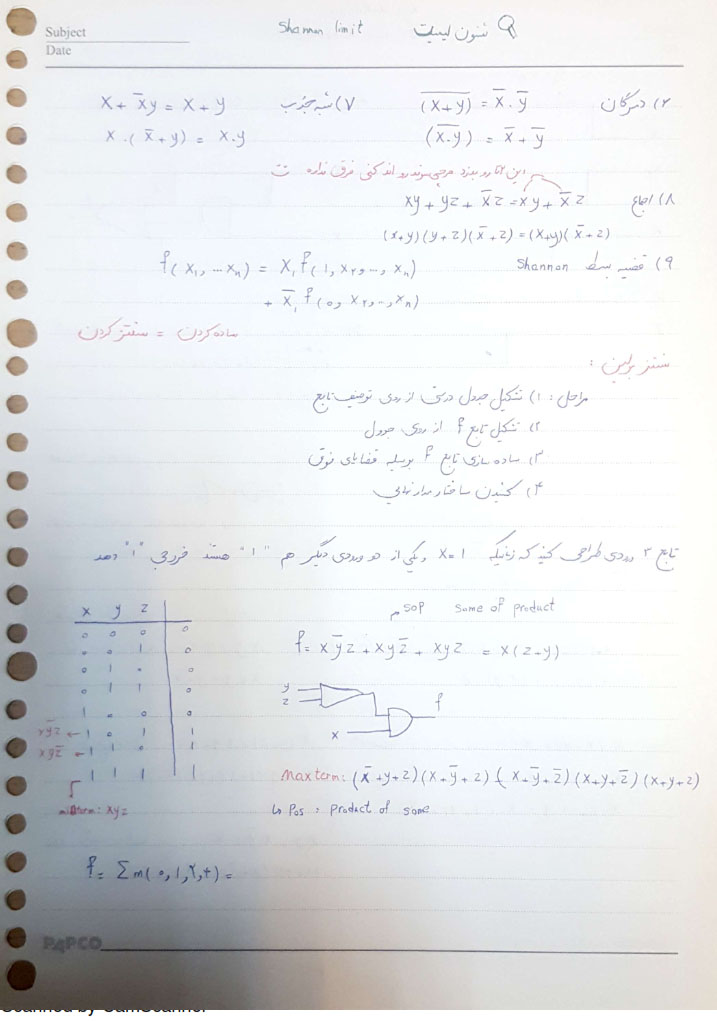 Subject
Date
شنون لیمیت Shannon limit
۶) دمرگان $\overline{(x+y)} = \bar{x}.\bar{y}$
$\overline{(x.y)} = \bar{x}+\bar{y}$
۷) شبه جذب $x+\bar{x}y = x+y$
$x.(\bar{x}+y) = x.y$
۸) اجماع $xy+yz+\bar{x}z = xy+\bar{x}z$
$(x+y)(y+z)(\bar{x}+z) = (x+y)(\bar{x}+z)$
۹) قضیه بسط Shannon $f(x_1, ... x_n) = x_1 f(1, x_2, ..., x_n)$
$+ \bar{x}_1 f(0, x_2, ..., x_n)$
ساده کردن = سنتز کردن
سنتز برلین :
مراحل : ۱) تشکیل جدول درستی از روی توصیف تابع
۲) تشکیل تابع f از روی جدول
۳) ساده سازی تابع f بوسیله قضایای فوق
۴) کشیدن ساختار مدار نهایی
تابع ۳ ورودی طراحی کنید که زمانیکه x=1 و یکی از دو ورودی دیگر هم "1" هستند خروجی "1" دهد
x y z
0 0 0 0
0 0 1 0
0 1 0 0
0 1 1 0
1 0 0 0
$x\bar{y}z$ ← 1 0 1 1
$xy\bar{z}$ ← 1 1 0 1
1 1 1 1
minterm: xyz
SOP Some of product
$f = x\bar{y}z + xy\bar{z} + xyz = x(z+y)$
y
z
x
f
Maxterm: $(\bar{x}+y+z)(x+\bar{y}+z)(x+\bar{y}+\bar{z})(x+y+\bar{z})(x+y+z)$
↳ Pos : product of some
PAPCO
Scanned by CamScanner